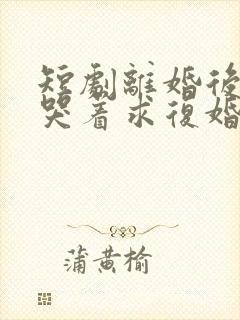 短劇離婚後
哭着求復婚
蒲黄榆